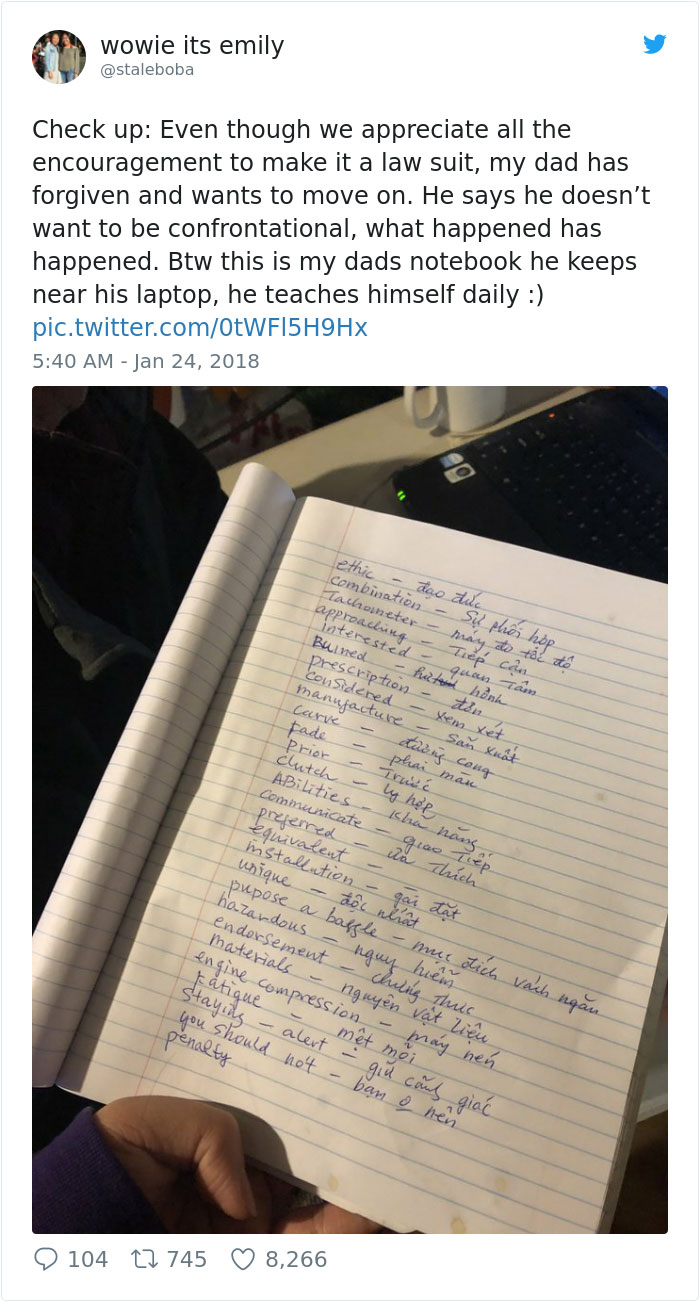 wowie its emily
@staleboba
Check up: Even though we appreciate all the
encouragement to make it a law suit, my dad has
forgiven and wants to move on. He says he doesn’t
want to be confrontational, what happened has
happened. Btw this is my dads notebook he keeps
near his laptop, he teaches himself daily :)
pic.twitter.com/0tWFl5H9Hx
5:40 AM - Jan 24, 2018
ethic – đạo đức
combination – Sự phối hợp
Tachometer – máy đo tốc độ
approaching – Tiếp cận
interested – quan Tâm
Buined – hành
prescription – đơn
considered – xem xét
manufacture – Sản xuất
carve – đường cong
fade – phai màu
prior – Trước
clutch – ly hợp
ABilities – khả năng
communicate – giao Tiếp
preferred – ưa Thích
equivalent –
installation – gài đặt
unique – độc nhất
pupose a baffle – mục đích vách ngăn
hazardous – nguy hiểm
endorsement – chứng Thực
materials – nguyên vật liệu
engine compression – máy nén
fatigue – mệt mỏi
staying – alert – giữ cảnh giác
you should not – bạn o nên
penalty
104 745 8,266